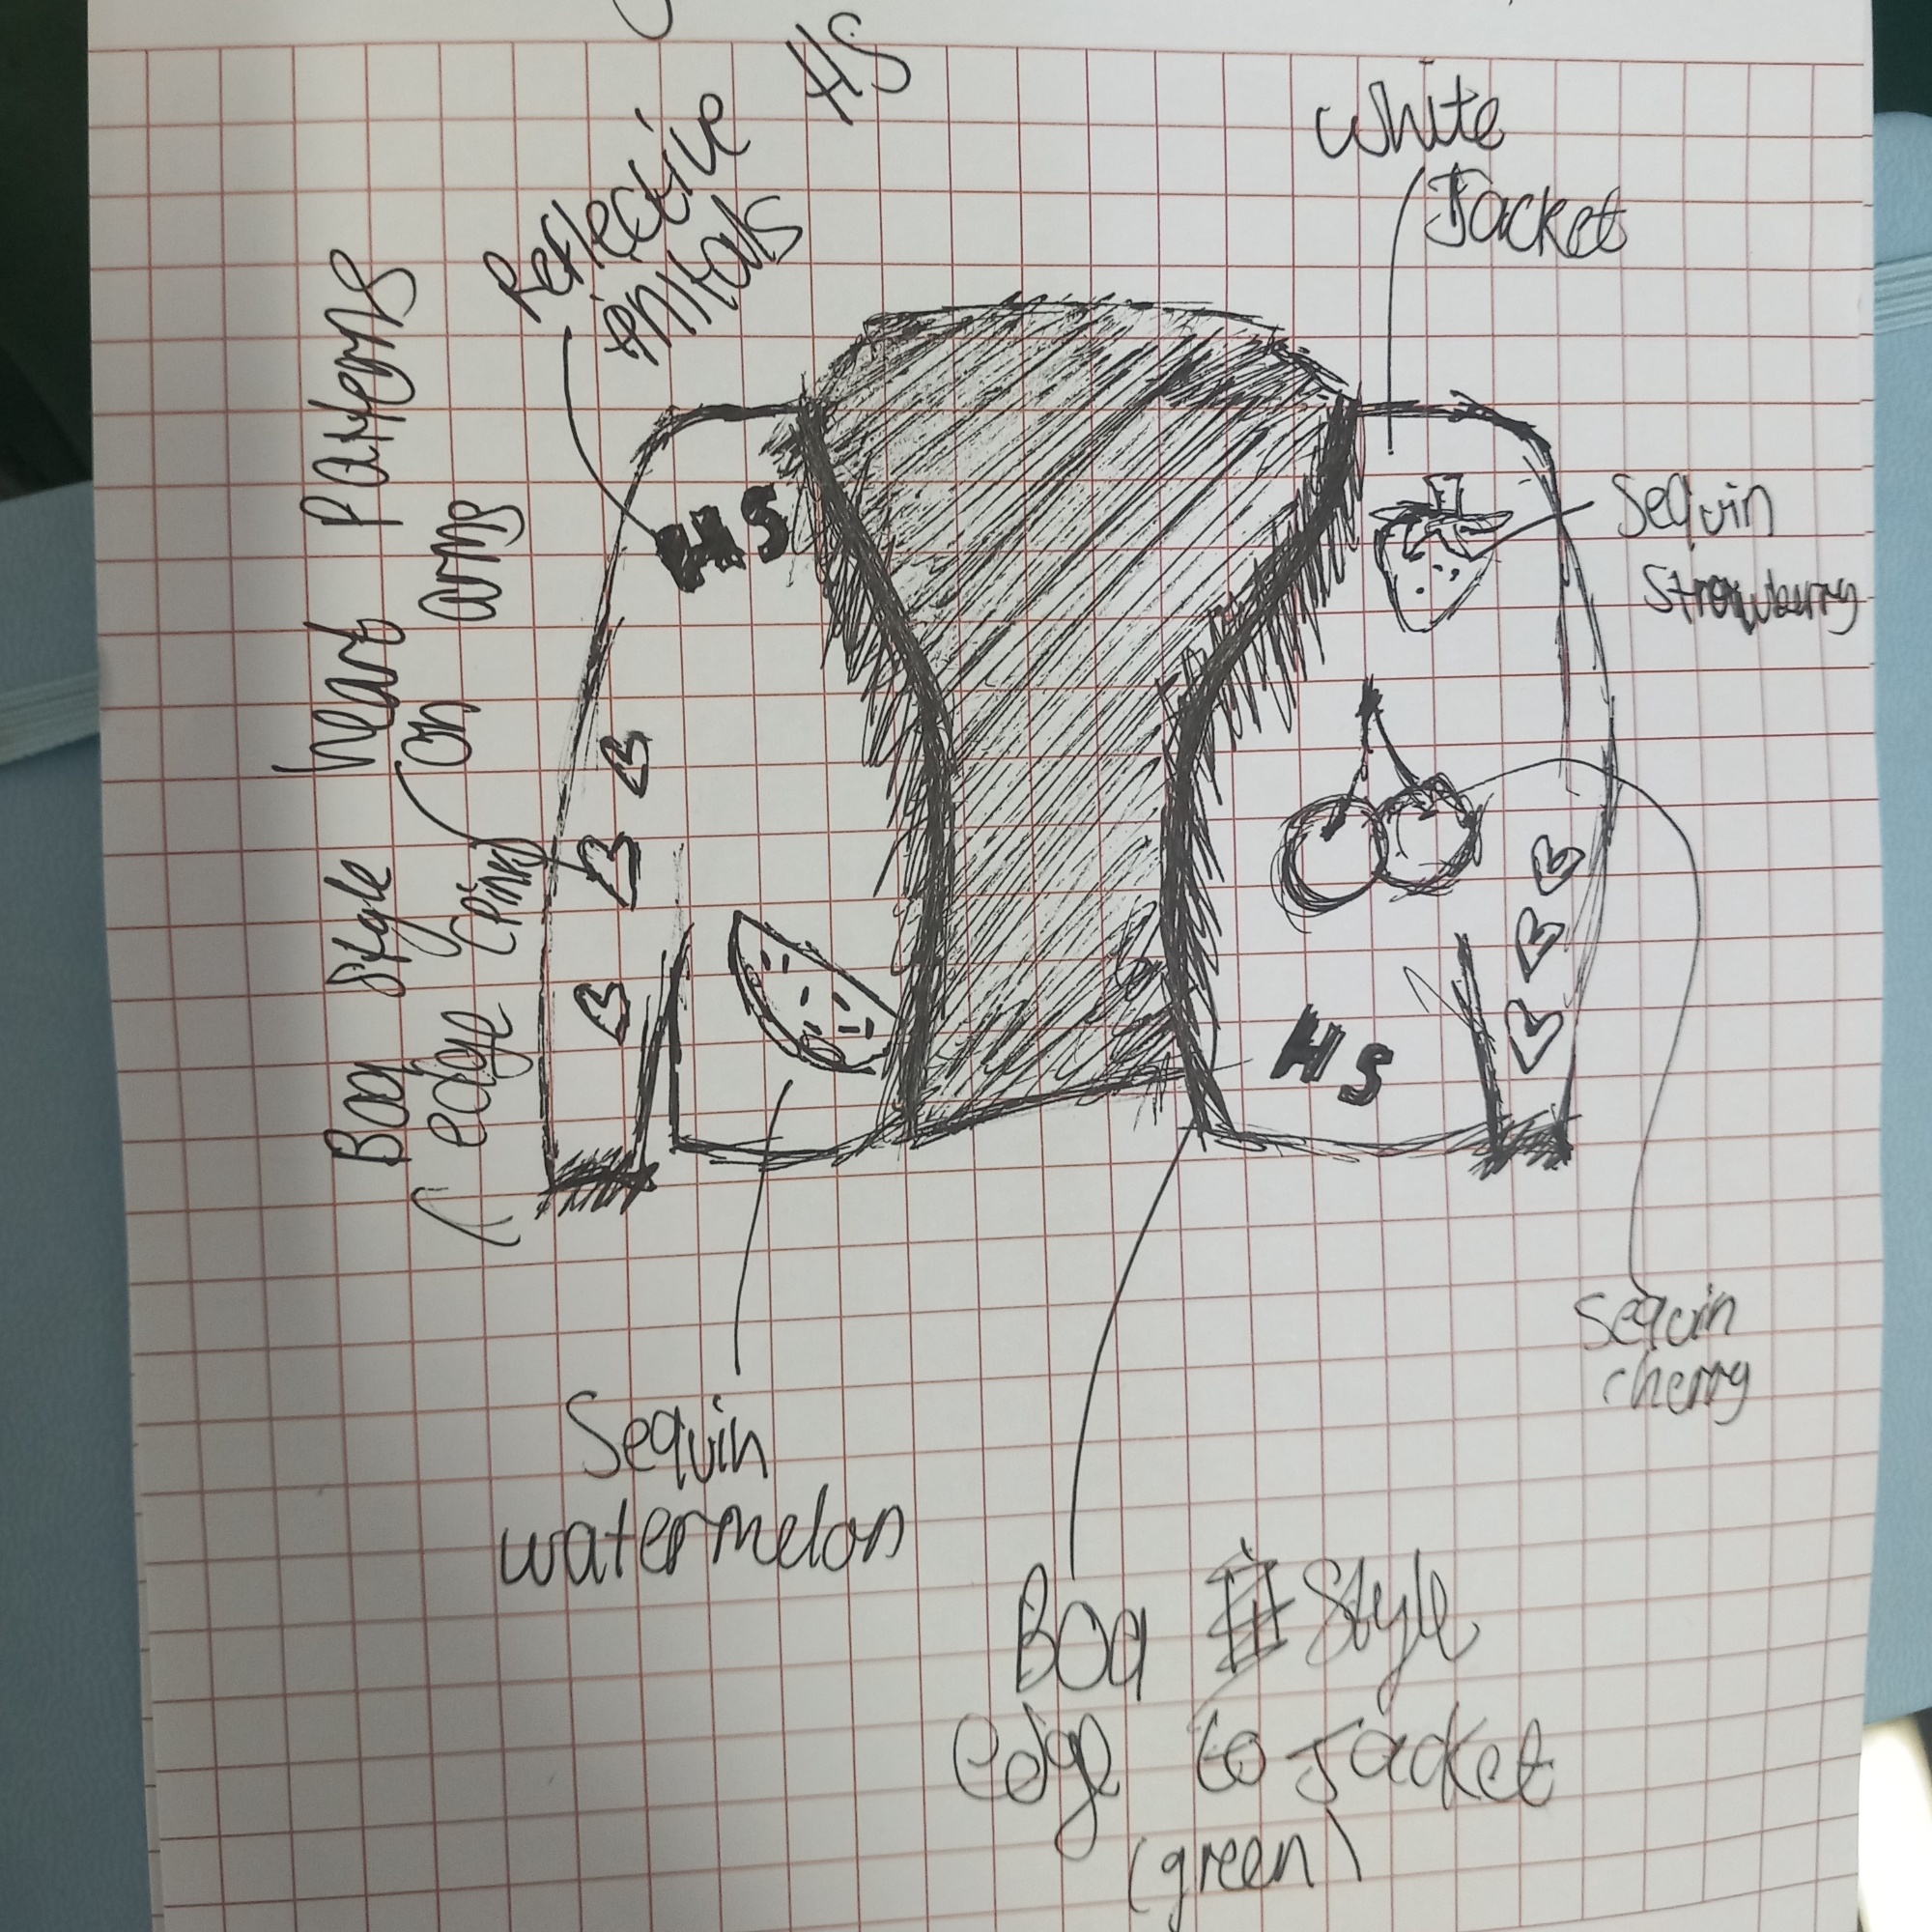 Reflective HS
initals
White
Jacket
heart Patterns
on arms
Sequin
Strawberry
HS
HS
Boa Style
edge (Pink)
Sequin
cherry
Sequin
watermelon
Boa Style
edge to Jacket
(green)